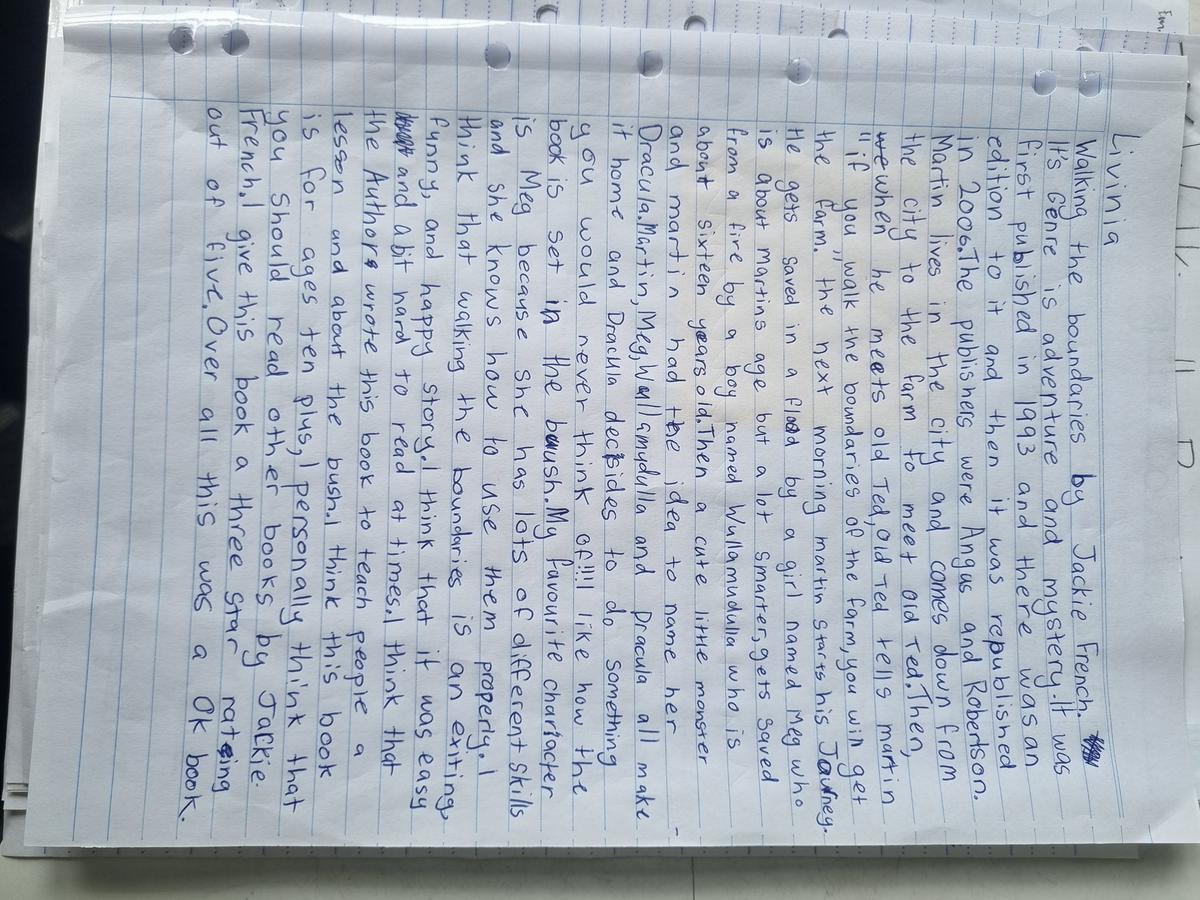 Livinia
Walking the boundaries by Jackie French.
It's Genre is adventure and mystery. It was
first published in 1993 and there was an
edition to it and then it was republished
in 2006. The publishers were Angus and Roberson.
Martin lives in the city and comes down from
the city to the farm to meet old Ted. Then,
when he meets old Ted, old Ted tells martin
"if you "walk the boundaries of the farm, you will get
the farm." the next morning martin starts his Jaurney.
He gets saved in a flood by a girl named Meg who
is about martins age but a lot smarter, gets saved
from a fire by a boy named Wullamudulla who is
about sixteen years old. Then a cute little monster
and martin had the idea to name her
Dracula. Martin, Meg, Wullamudulla and Dracula all make
it home and Dracula decides to do something
you would never think of!!! I like how the
book is set in the bush. My favourite character
is Meg because she has lots of different skills
and she knows how to use them properly. I
think that walking the boundaries is an exiting,
funny, and happy story. I think that it was easy
and a bit hard to read at times. I think that
the Author wrote this book to teach people a
lesson and about the bush. I think this book
is for ages ten plus, I personally think that
you should read other books by Jackie
French. I give this book a three star rateing
out of five. Over all this was a Ok book.